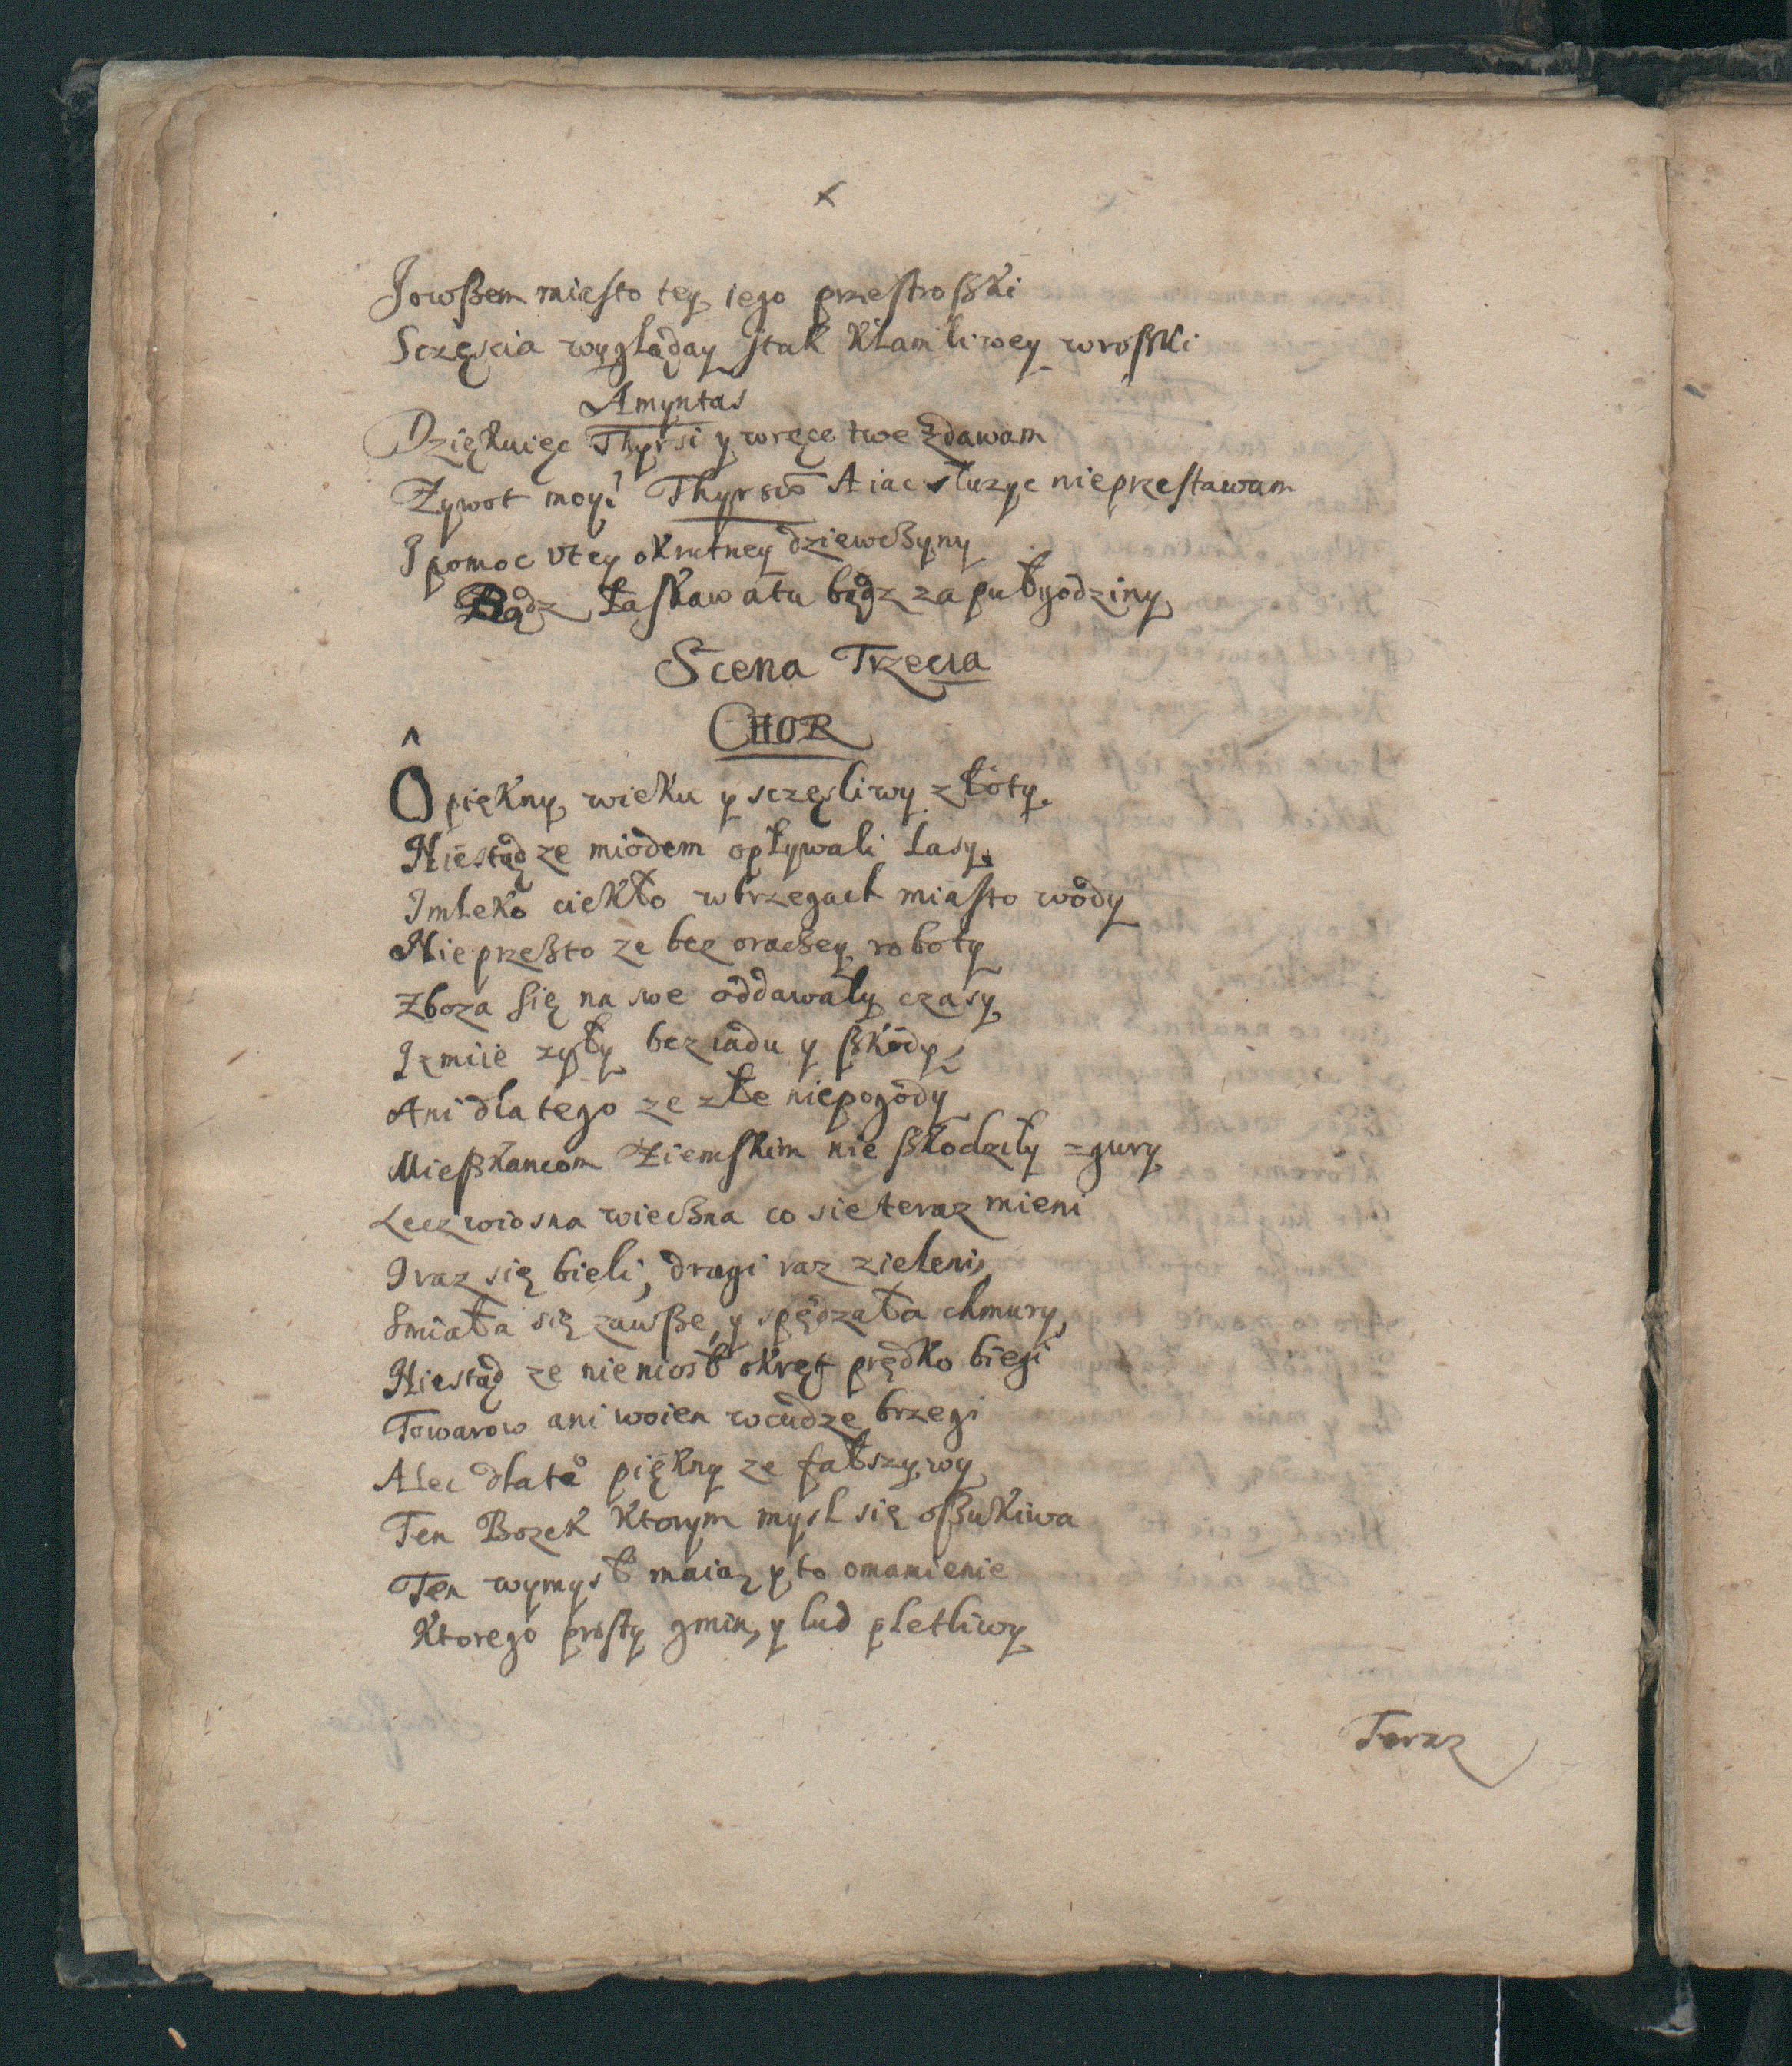 x
Jowßem miasto tey iego przestroßki
Sczęscia wyglăday Jtak kłamliwey wroßki
Amyntas
Dziękuięc Thyrsi y wręce twe zdawam
Zywot moy! Thyrsis A iac słuzyc nieprzestawam
J pomoc vtey okrutney dziewcßyny
Bądz Łaskaw atu bądz za pułgodziny
Scena Trzecia
CHOR
Ô piękny wieku y sczęsliwy złoty.
Niestąd ze miodem opływali Lasy.
Jmleko ciekło wbrzegach miasto wody
Nie przeßto ze bez oracßey roboty
Zboza się na swe oddawały czasy
Jzmiie zyły bez iadu y ßkody,
Ani dla tego ze złe niepogody
Mießkancom Ziemskim nie ßkodziły zgury
Lecz wiosna wiecßna co sie teraz mieni
J raz się bieli, drugi raz zieleni,
Smiała się zawße, y spędzała chmury,
Niestąd ze nieniosł okręt prędko biegi
Towarow ani woien wcudze brzegi
Alec dlatº piękny ze fałszywy
Ten Bozek ktorym mysl się oßukiwa
Ten wymysł maią y to omamienie
Ktorego prosty gmin, y lud pletliwy
Teraz